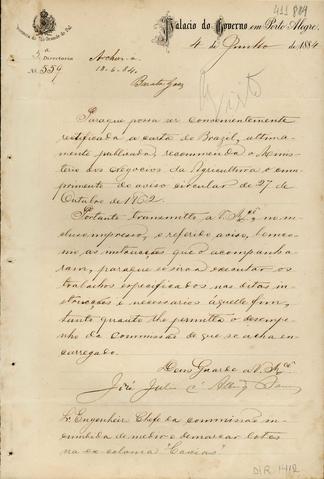 411 889
Palacio do Governo em Porto Alegre,
4 de Junho de 1884
Provincia do Rio Grande do Sul
3.ª Directoria
N. 559
Archive-se
18-6-84.
Visto
Para que possa ser convenientemente
rectificada a carta do Brazil, ultima-
mente publicada, recommenda o Minis-
terio dos Negocios da Agricultura o cum-
primento do aviso circular de 27 de
Outubro de 1862.
Portanto transmitto a V. Mcê, no in-
cluso impresso, o referido aviso, bem co-
mo as instrucções que o acompanha-
ram, para que se sirva executar os
trabalhos especificados nas ditas ins-
trucções e necessarios áquelle fim,
tanto quanto lhe permitta o desempe-
nho da commissão de que se acha en-
carregado.
Deus Guarde a V. Mcê
José Julio de Albuqe Barros
Sr. Engenheiro Chefe da commissão in-
cumbida de medir e demarcar lotes
na ex-colonia "Caxias"
DIR 1412